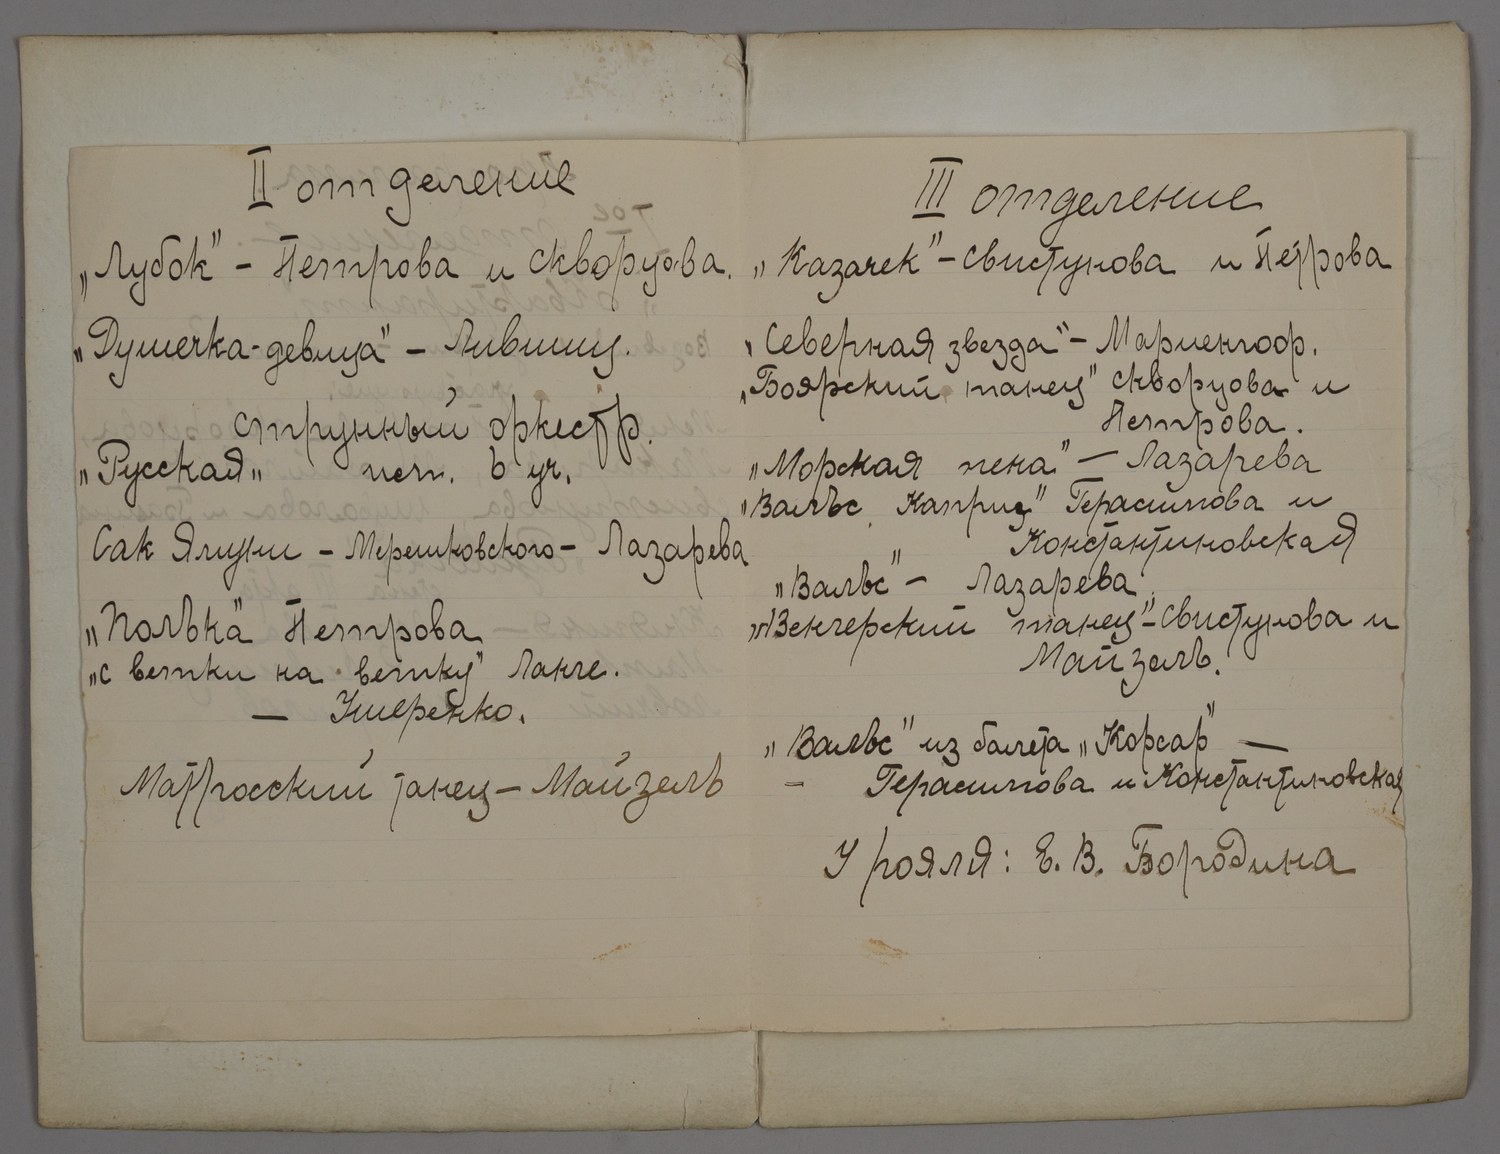 II отделение
„Лубок" – Петрова и Скворцова.
„Душечка-девица" – Лившиц.
Струнный оркестр.
„Русская„ исп. 6 уч.
Сак Ялуни – Мерешковского – Лазарева
„Полька" Петрова
„с ветки на ветку" Ланге.
— Ушеренко.
Матросский танец – Майзель
III отделение
„Казачек" – Свистунова и Петрова
„Северная звезда" – Мариенгоф.
„Боярский танец" Скворцова и
Петрова.
„Морская пена" – Лазарева
„Вальс Каприз" Герасимова и
Константиновская
„Вальс" – Лазарева.
„Венгерский танец" – Свистунова и
Майзель.
„Вальс" из балета „Корсар" —
– Герасимова и Константиновская
У рояля: Е. В. Бородина